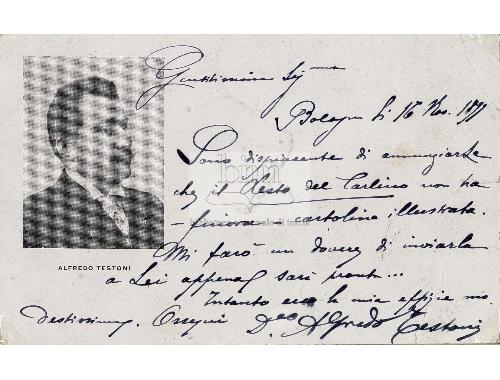 Gentilissima Sig.na
Bologna li 16 Nov. 1899
Sono dispiacente di annunziarle
che il Resto del Carlino non ha
finora cartoline illustrata.
Mi farò un dovere di inviarla
a Lei appena sarà pronta...
Intanto ecco la mia effigie mo
destissima. Ossequi Dev.o Alfredo Testoni
ALFREDO TESTONI